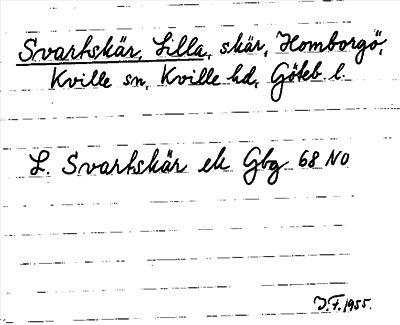 Svartskär, Lilla, skär, Homborgö,
Kville sn, Kville hd, Göteb. l.
L. Svartskär ek Gbg 68 NO
J.F. 1955.